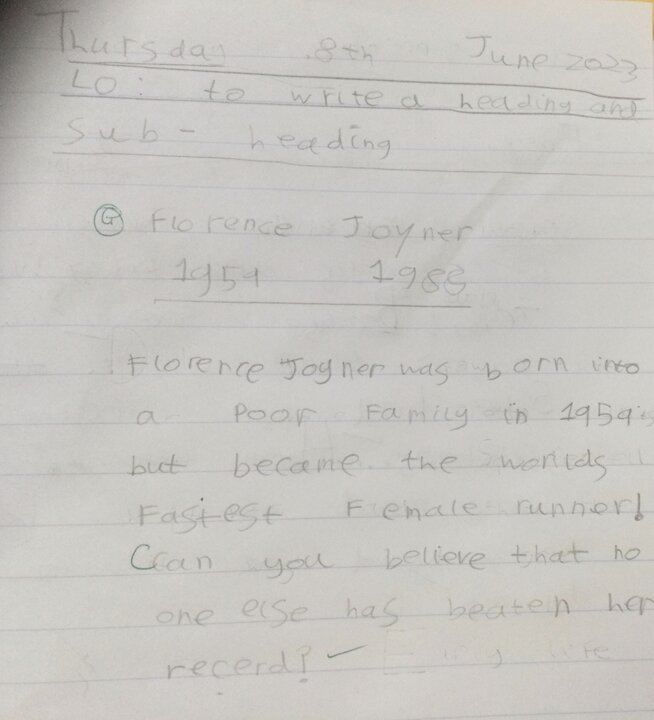 Thursday 8th June 2023
LO: to write a heading and
sub-heading
G Florence Joyner
1959 1988
Florence Joyner was born into
a Poor Family in 1959
but became the worlds
Fastest Female runner!
Can you believe that no
one else has beaten her
recerd?